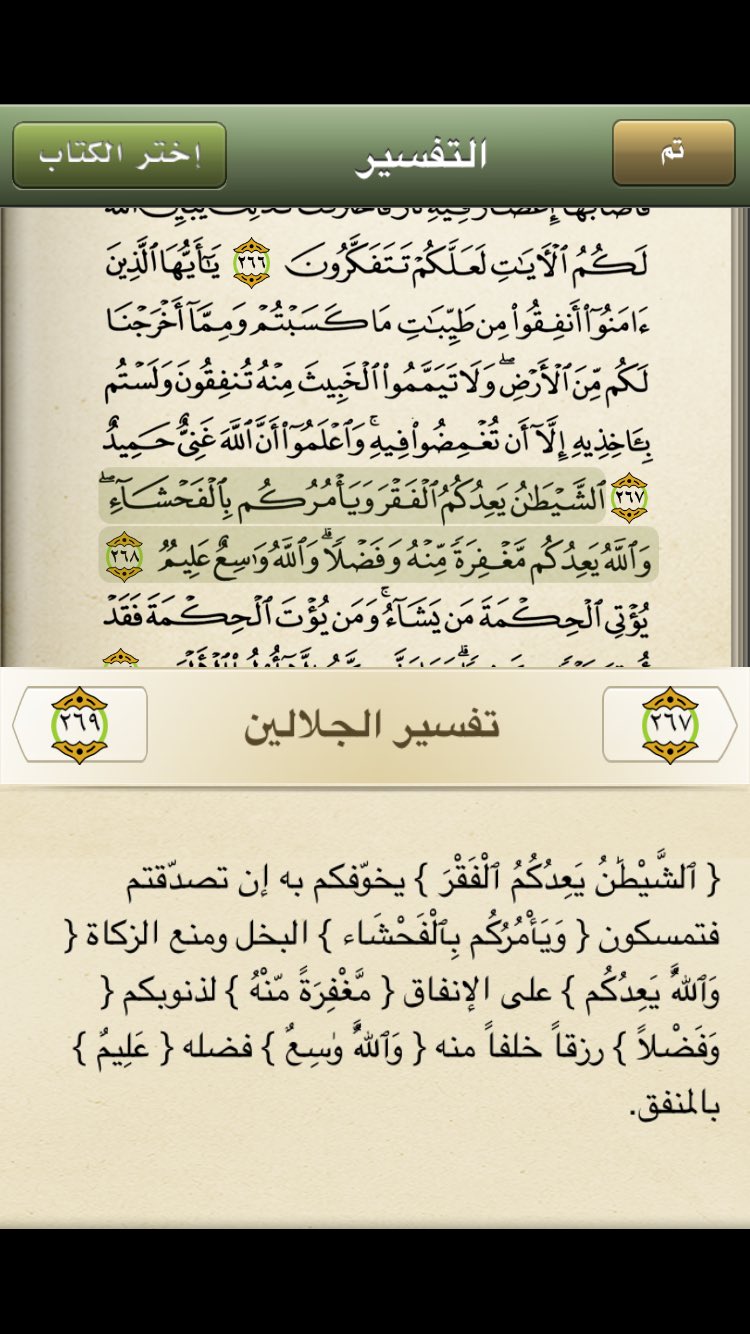 إختر الكتاب
التفسير
تم
لَكُمُ ٱلْأَيَٰتِ لَعَلَّكُمْ تَتَفَكَّرُونَ ٢٦٦ يَٰٓأَيُّهَا ٱلَّذِينَ
ءَامَنُوٓا۟ أَنفِقُوا۟ مِن طَيِّبَٰتِ مَا كَسَبْتُمْ وَمِمَّآ أَخْرَجْنَا
لَكُم مِّنَ ٱلْأَرْضِ ۖ وَلَا تَيَمَّمُوا۟ ٱلْخَبِيثَ مِنْهُ تُنفِقُونَ وَلَسْتُم
بِـَٔاخِذِيهِ إِلَّآ أَن تُغْمِضُوا۟ فِيهِ ۚ وَٱعْلَمُوٓا۟ أَنَّ ٱللَّهَ غَنِىٌّ حَمِيدٌ
٢٦٧ ٱلشَّيْطَٰنُ يَعِدُكُمُ ٱلْفَقْرَ وَيَأْمُرُكُم بِٱلْفَحْشَآءِ ۖ
وَٱللَّهُ يَعِدُكُم مَّغْفِرَةً مِّنْهُ وَفَضْلًا ۗ وَٱللَّهُ وَٰسِعٌ عَلِيمٌ ٢٦٨
يُؤْتِى ٱلْحِكْمَةَ مَن يَشَآءُ ۚ وَمَن يُؤْتَ ٱلْحِكْمَةَ فَقَدْ
٢٦٧
تفسير الجلالين
٢٦٩
{ ٱلشَّيْطَٰنُ يَعِدُكُمُ ٱلْفَقْرَ } يخوّفكم به إن تصدّقتم
فتمسكون { وَيَأْمُرُكُم بِٱلْفَحْشَاء } البخل ومنع الزكاة {
وَٱللَّهُ يَعِدُكُم } على الإنفاق { مَّغْفِرَةً مّنْهُ } لذنوبكم {
وَفَضْلاً } رزقاً خلفاً منه { وَٱللَّهُ وٰسِعٌ } فضله { عَلِيمٌ }
بالمنفق.